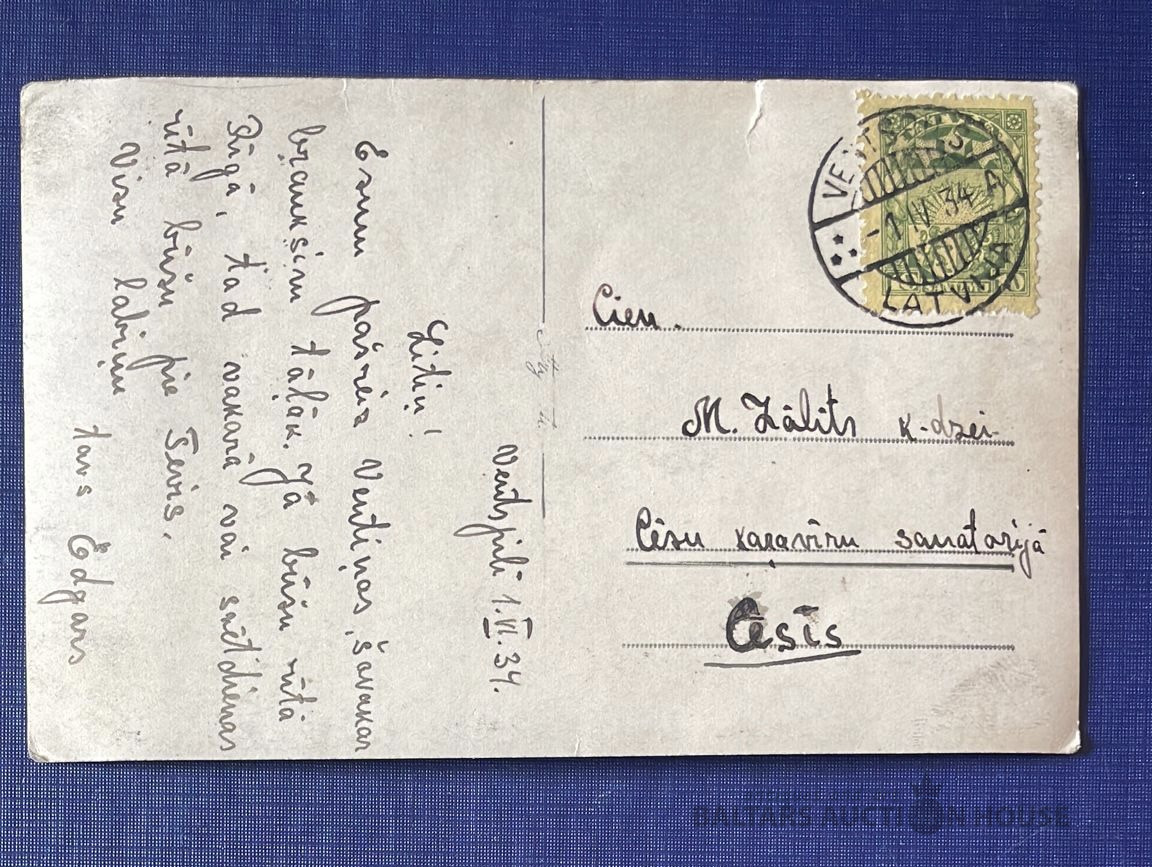 Ventspilī 1.VI.34.
Zitiņ!
Esmu pašreiz Ventiņos, šovakar
braukšim tālāk. Jā būšu rītā
Rīgā, tad vakarā vai svētdienas
rītā būšu pie Tevis.
Visu labiņu
tavs Edgars
LATVIJA
-1 IV 34 A
Cien.
M. Zālīts k-dzei
Cēsu kaŗavīru sanatorijā
Cēsīs
BALTARS AUCTION HOUSE